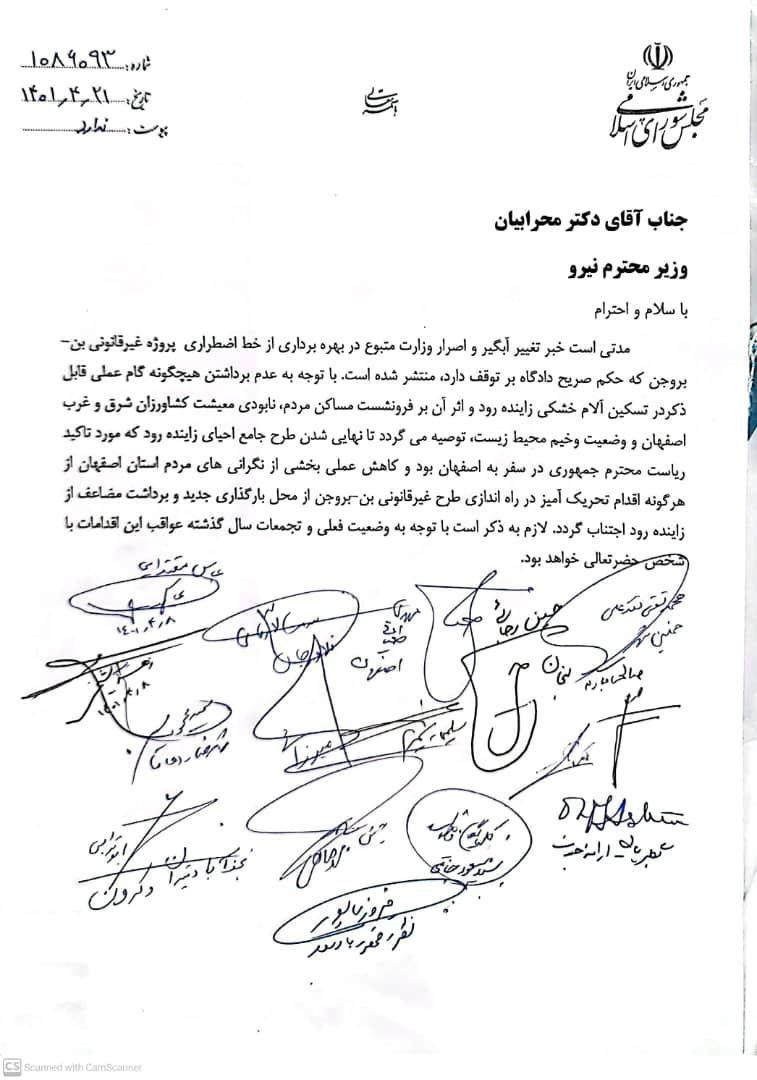 جمهوری اسلامی ایران
مجلس شورای اسلامی
باسمه تعالی
شماره: ۱۰۸۶۰۹۳
تاریخ: ۱۴۰۱٫۴٫۲۱
پیوست: ندارد
جناب آقای دکتر محرابیان
وزیر محترم نیرو
با سلام و احترام
مدتی است خبر تغییر آبگیر و اصرار وزارت متبوع در بهره برداری از خط اضطراری پروژه غیرقانونی بن–
بروجن که حکم صریح دادگاه بر توقف دارد، منتشر شده است. با توجه به عدم برداشتن هیچگونه گام عملی قابل
ذکردر تسکین آلام خشکی زاینده رود و اثر آن بر فرونشست مساکن مردم، نابودی معیشت کشاورزان شرق و غرب
اصفهان و وضعیت وخیم محیط زیست، توصیه می گردد تا نهایی شدن طرح جامع احیای زاینده رود که مورد تاکید
ریاست محترم جمهوری در سفر به اصفهان بود و کاهش عملی بخشی از نگرانی های مردم استان اصفهان از
هرگونه اقدام تحریک آمیز در راه اندازی طرح غیرقانونی بن–بروجن از محل بارگذاری جدید و برداشت مضاعف از
زاینده رود اجتناب گردد. لازم به ذکر است با توجه به وضعیت فعلی و تجمعات سال گذشته عواقب این اقدامات با
شخص حضرتعالی خواهد بود.
عباس مقتدایی
۱۴۰۱٫۴٫۸
محمد تقی نقدعلی
خمینی شهر
حسین رجائی
لنجان
اصفهان
فلاورجان
۱۴۰۱٫۴٫۸
سمیرم
نجف آباد تیران و کرون
ابوترابی
گلپایگان
سید مسعود خاتمی
فیروزپور
CS Scanned with CamScanner